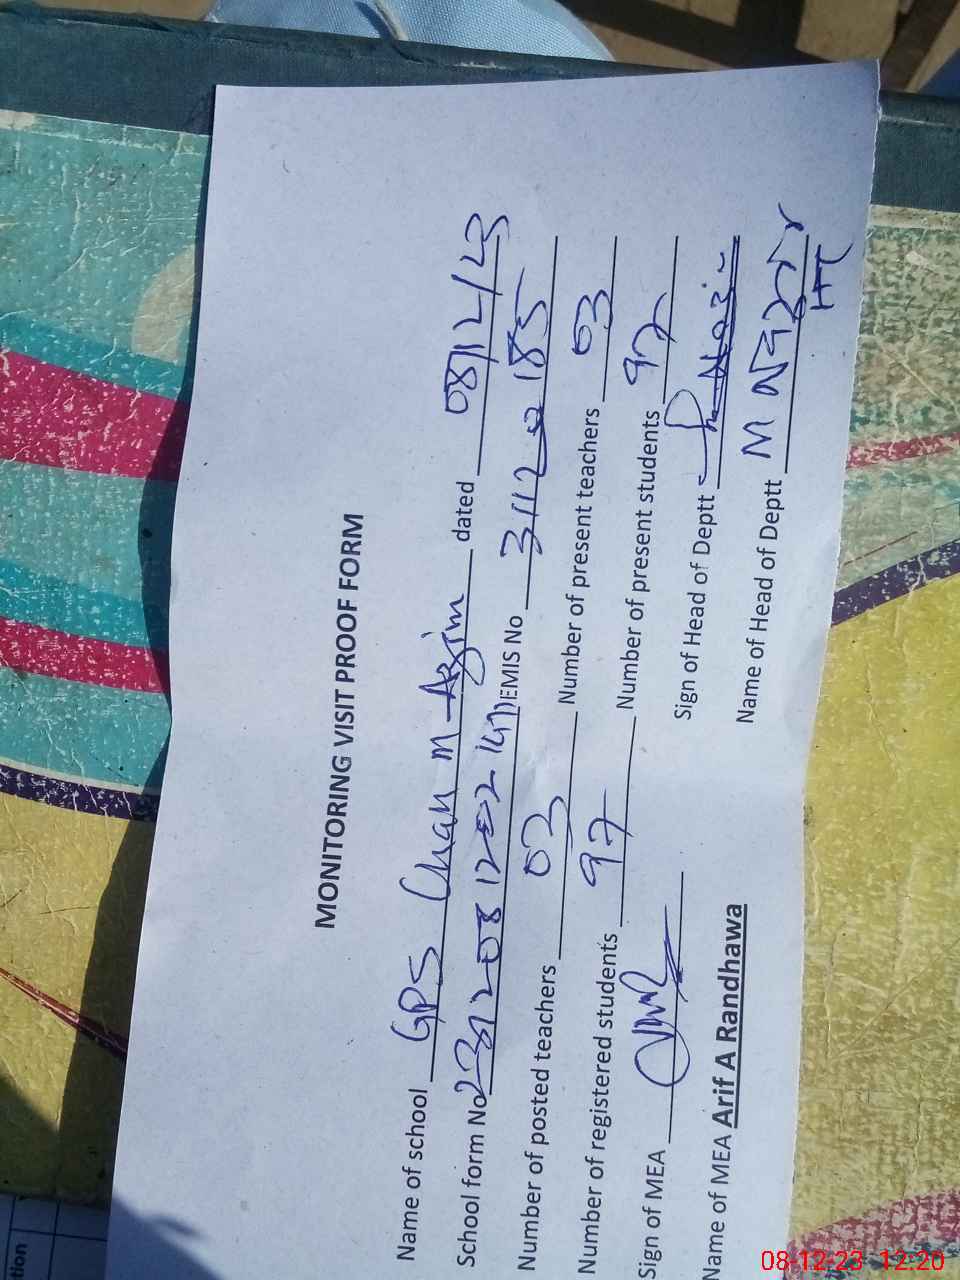 MONITORING VISIT PROOF FORM
Name of school GPS Chah M Azim dated 08/12/23
School form No EMIS No 31120185
Number of posted teachers 03 Number of present teachers 03
Number of registered students 97 Number of present students 92
Sign of MEA Sign of Head of Deptt
Name of MEA Arif A Randhawa Name of Head of Deptt M Nazir
HT
tion
08-12-23 12:20